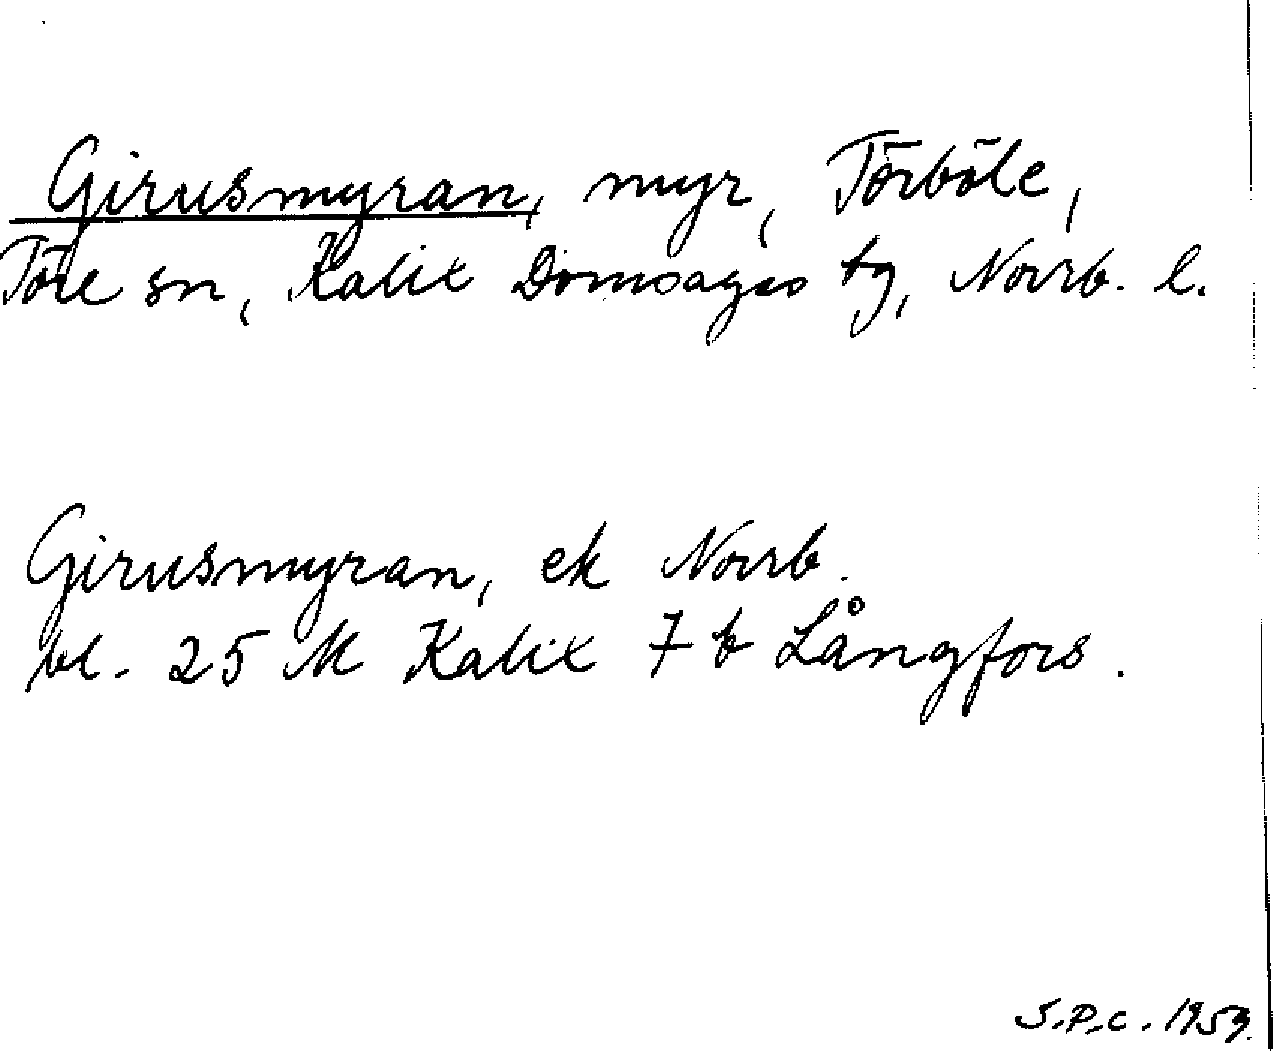 Girusmyran, myr, Törböle,
Töre sn, Kalix Domsagas tg, Norrb. l.
Girusmyran, ek Norrb.
bl. 25 M Kalix 7 b Långfors.
S.P.C. 1959.